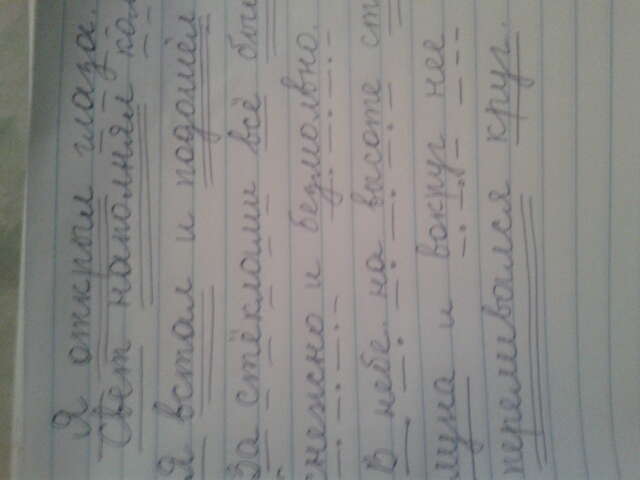 Я открыл глаза.
Свет наполнял ком
Я встал и подошёл
За стёклами всё был
снежно и безмолвно.
В небе на высоте ст
луна и вокруг неё
переливался круг.